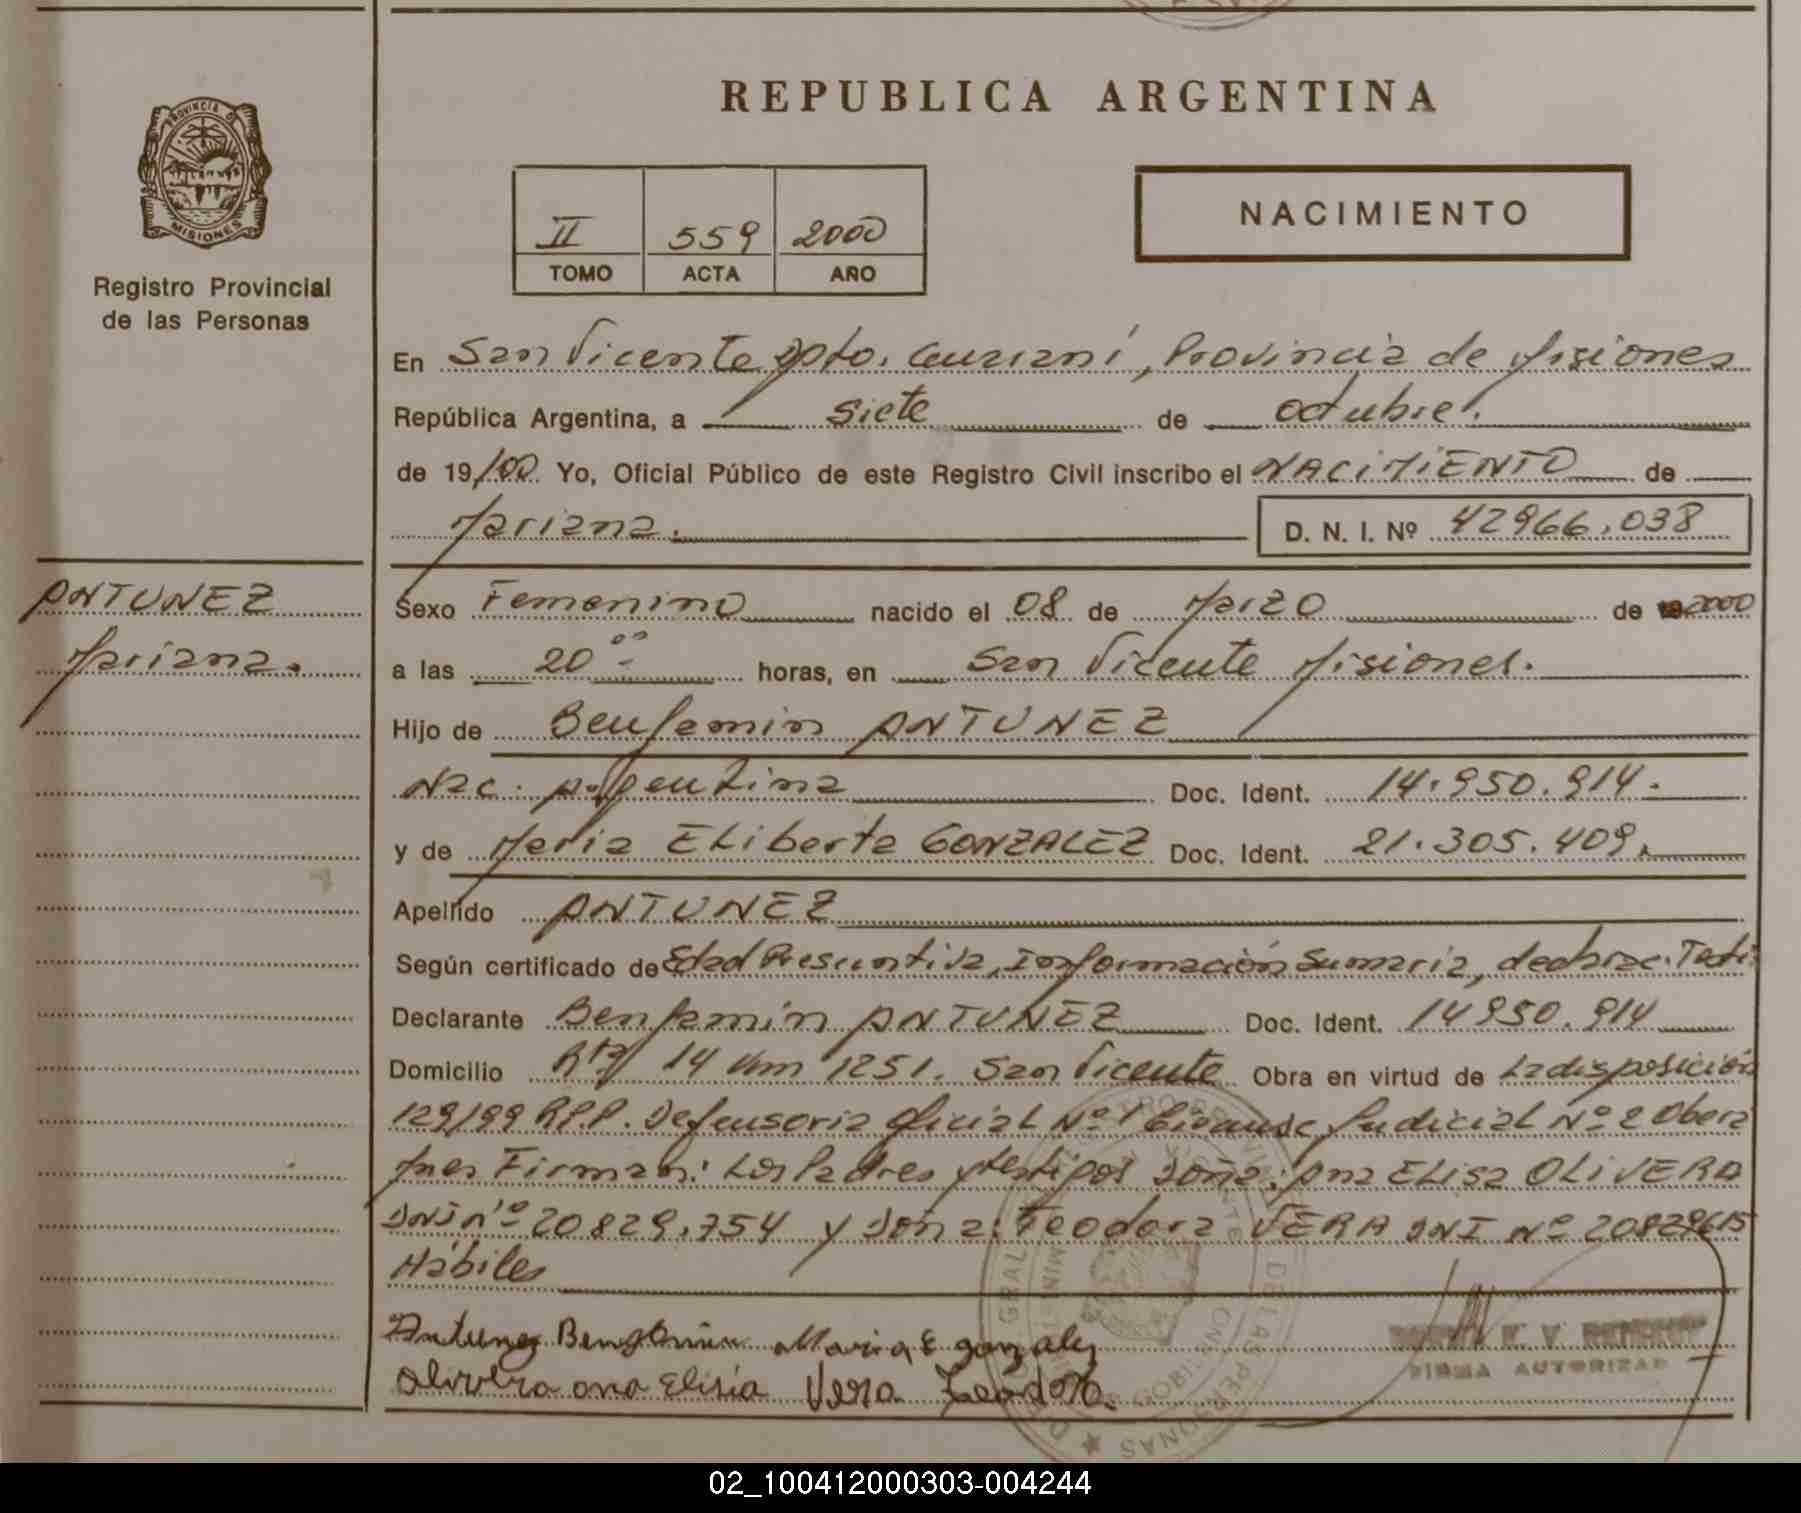 REPUBLICA ARGENTINA
PROVINCIA DE
MISIONES
Registro Provincial
de las Personas
II 559 2000
TOMO ACTA AÑO
NACIMIENTO
En San Vicente Dpto. Guaraní, Provincia de Misiones
República Argentina, a siete de octubre.
de 19/00 Yo, Oficial Público de este Registro Civil inscribo el NACIMIENTO de
Mariana. D. N. I. Nº 42966.038
ANTUNEZ
Mariana.
Sexo Femenino nacido el 08 de Marzo de 2000
a las 20 00 horas, en San Vicente Misiones.
Hijo de Benjamin ANTUNEZ
Nac. Argentina Doc. Ident. 14.950.914.
y de Maria ELiberta GONZALEZ Doc. Ident. 21.305.409.
Apellido ANTUNEZ
Según certificado de Edad Presuntiva, Información Sumaria, declarac. Testi
Declarante Benjamin ANTUNEZ Doc. Ident. 14950.914
Domicilio Rta 14 Km 1251. San Vicente Obra en virtud de La disposición
129/99 R.P.P. Defensoria Oficial Nº 1 Judicial Nº 2 Obera
Mnes Firman: Los Padres y testigos Doña: Ana ELisa OLIVERA
DNI nº 20829.754 y Doña: Teodora VERA DNI Nº 20829615
Hábiles
Antunez Benjamin Maria E gonzalez
Olivera ana Elisia Vera Teodora.
FIRMA AUTORIZAD
02_100412000303-004244